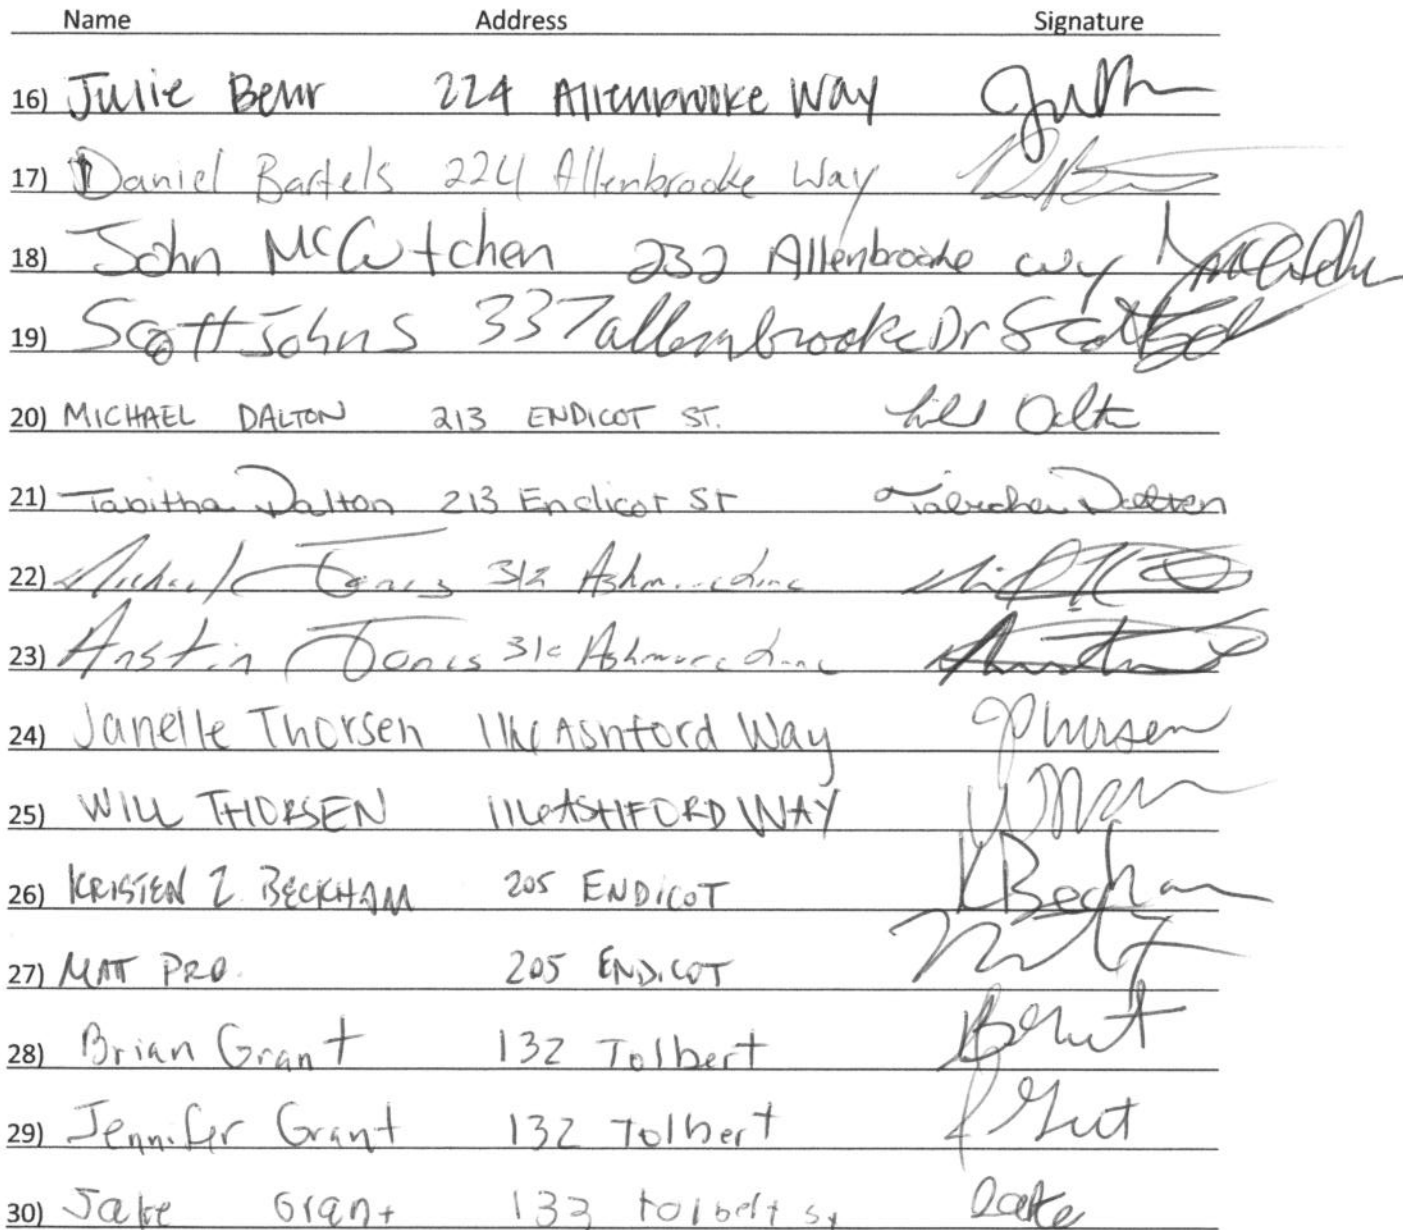 Name Address Signature
16) Julie Behr 224 Allenbrooke Way
17) Daniel Bartels 224 Allenbrooke Way
18) John McCutchen 232 Allenbrooke wy
19) Scott Johns 337 allenbrooke Dr
20) MICHAEL DALTON 213 ENDICOT ST.
21) Tabitha Dalton 213 Endicot St Tabitha Dalton
22) Michael Jones 312 Ashmore Lane
23) Austin Jones Ashmore Lane
24) Janelle Thorsen 116 Ashford Way JThorsen
25) WILL THORSEN 116 ASHFORD WAY
26) KRISTEN Z. BECKHAM 205 ENDICOT KBeckham
27) MATT PRO. 205 ENDICOT
28) Brian Grant 132 Tolbert
29) Jennifer Grant 132 Tolbert
30) Jake Grant 132 tolbelt st